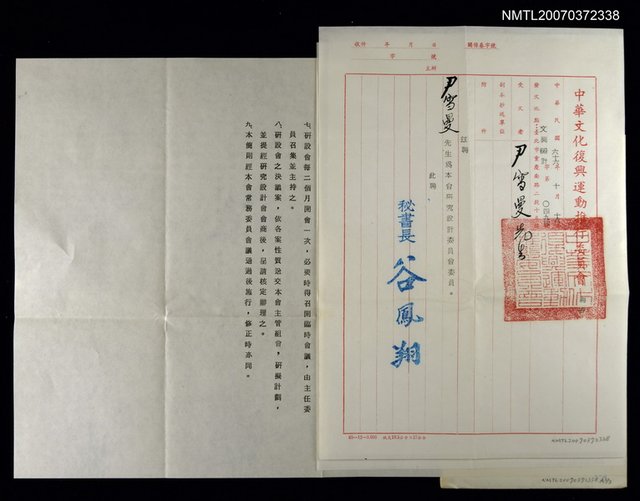 NMTL20070372338
收件 年 月 日
字 號
中華文化復興運動推
中華民國六十六年十月十
受文者
尹雪曼先生
副本抄送單位
附件
敦聘
尹雪曼先生為本會研究設計委員會委員。
此聘
秘書長 谷鳳翔
七、研設會每二個月開會一次，必要時得召開臨時會議，由主任委
員召集並主持之。
八、研設會之決議案，依各案性質送交本會主管組會，研擬計劃，
並提經研究設計會會商後，呈請核定辦理之。
九、本簡則經本會常務委員會議通過後施行，修正時亦同。
NMTL20070372338